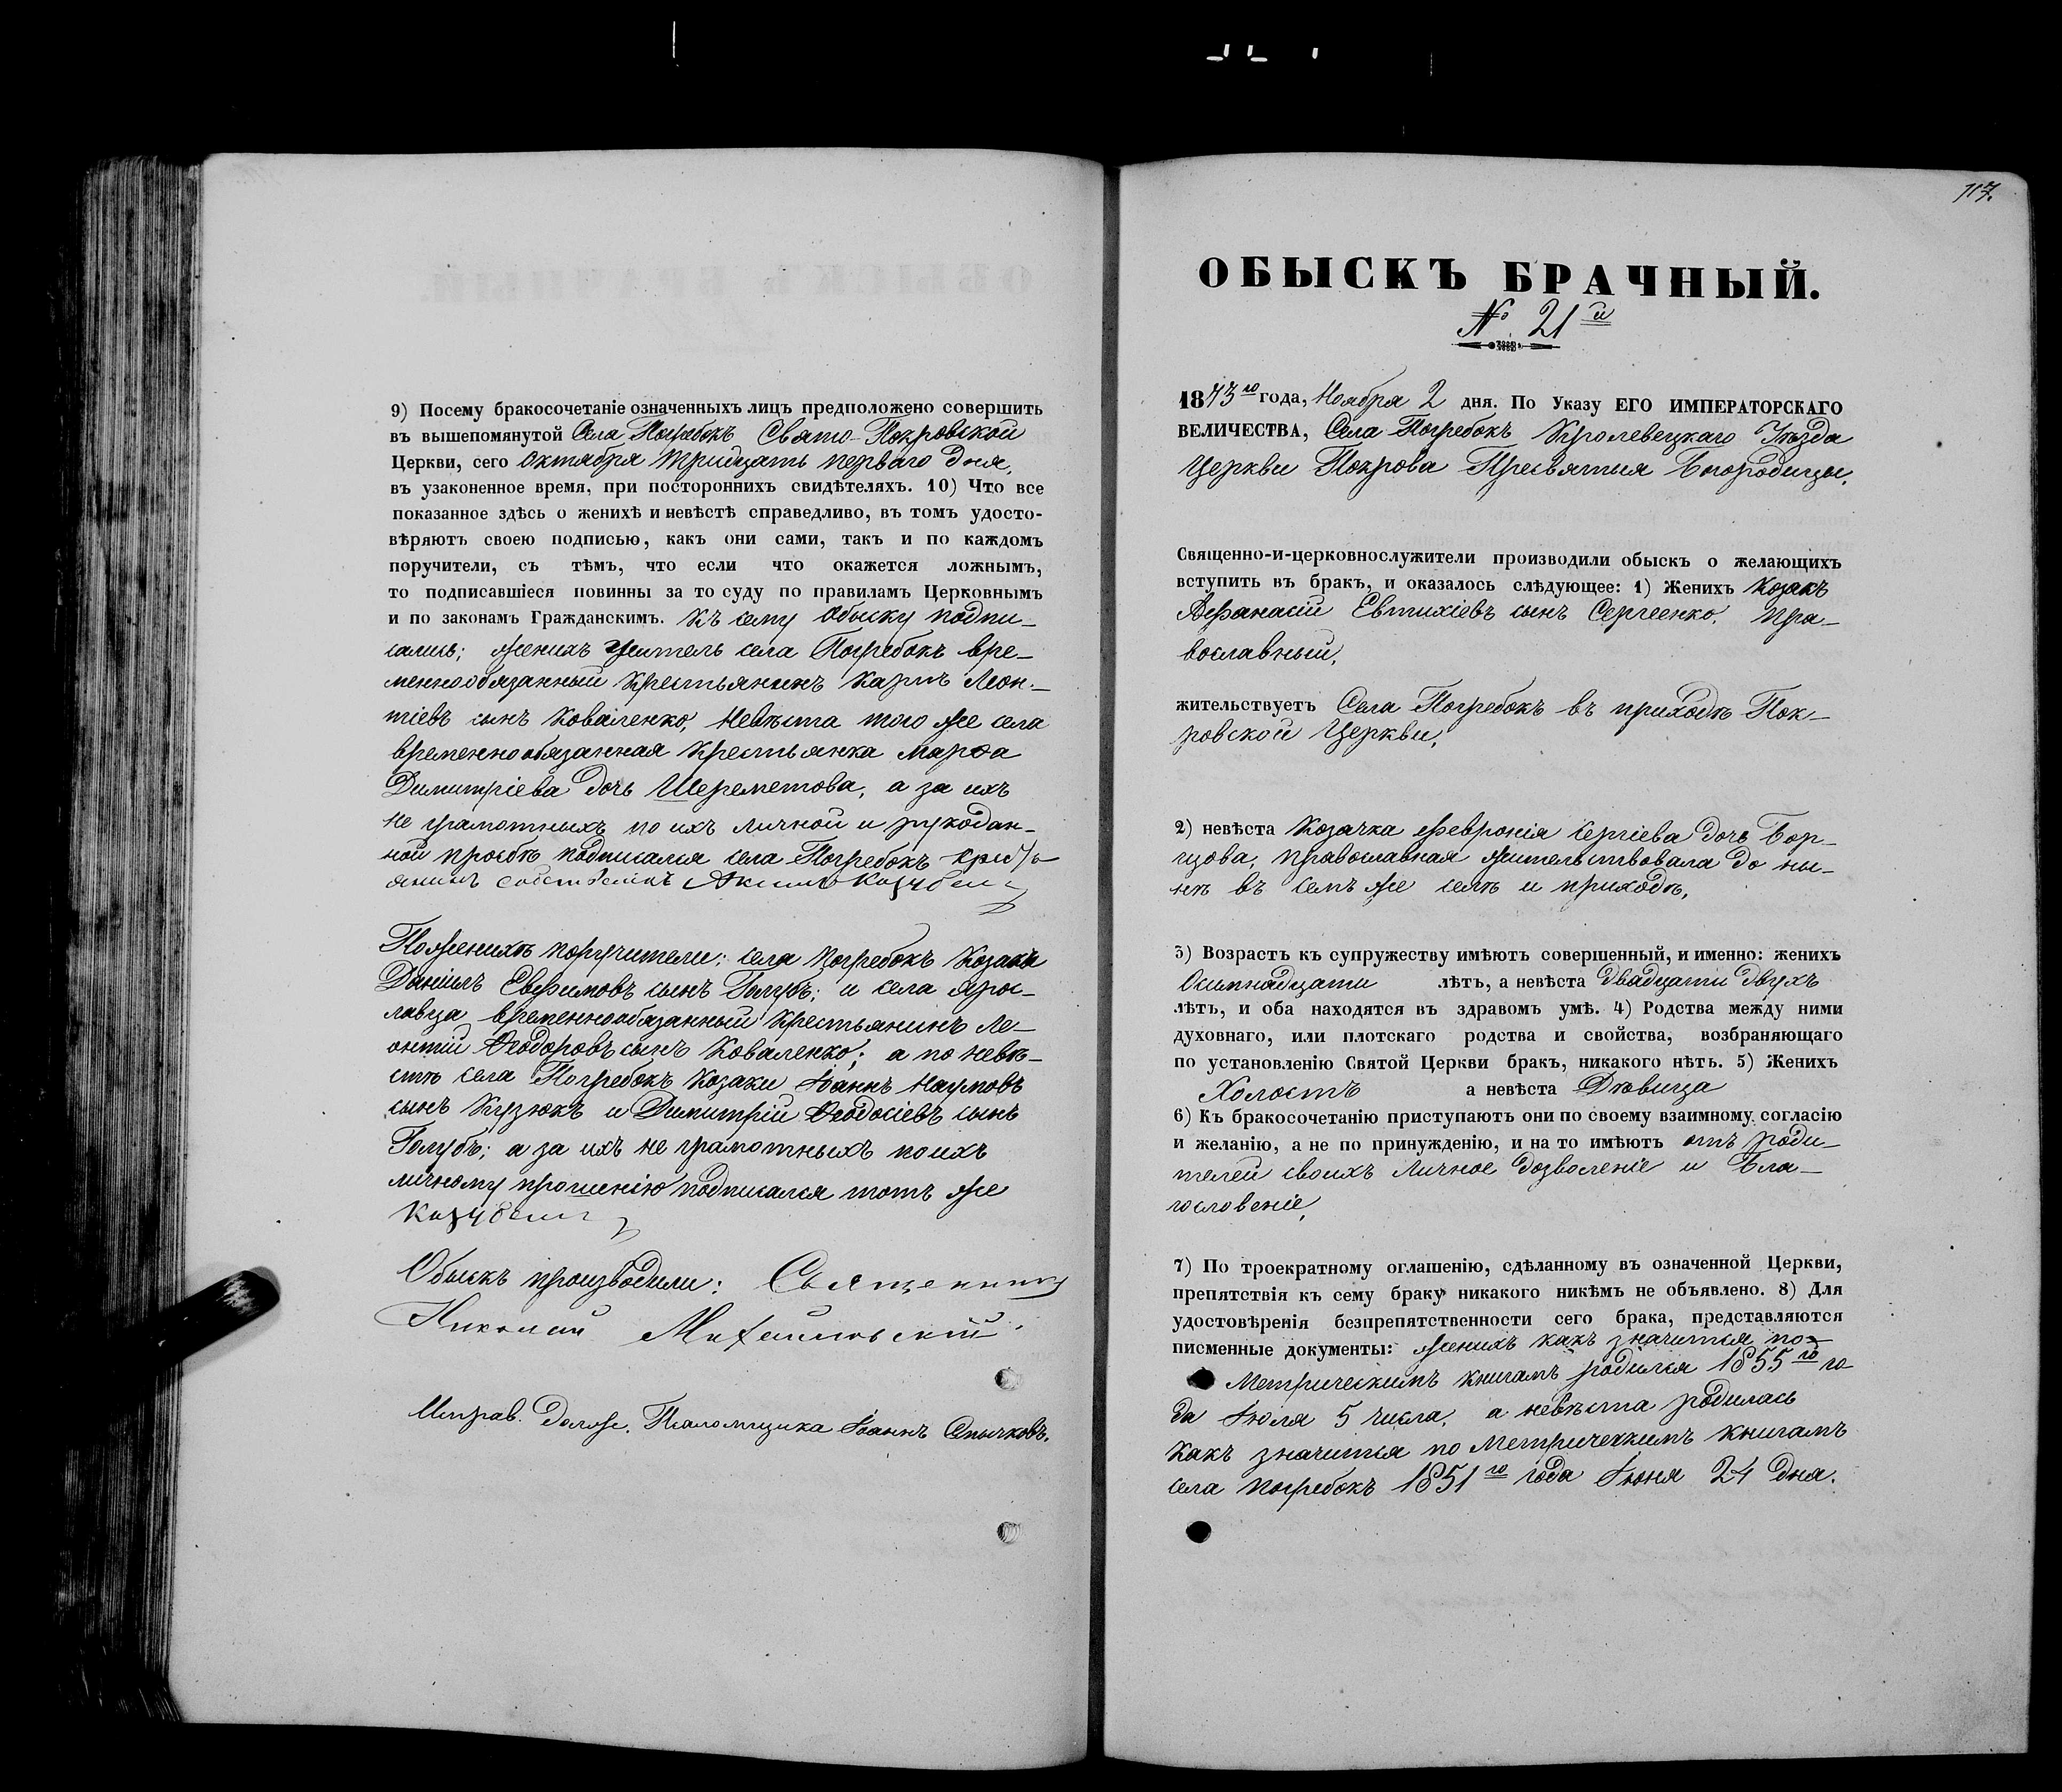 9) Посему бракосочетаніе означенныхъ лицъ предположено совершить
въ вышепомянутой Села Погребокъ Свято-Покровской
Церкви, сего Октября тридцать перваго дня,
въ узаконенное время, при постороннихъ свидѣтеляхъ. 10) Что все
показанное здѣсь о женихѣ и невѣстѣ справедливо, въ томъ удосто-
вѣряютъ своею подписью, какъ они сами, такъ и по каждомъ
поручители, съ тѣмъ, что если что окажется ложнымъ,
то подписавшіеся повинны за то суду по правиламъ Церковнымъ
и по законамъ Гражданскимъ. Къ сему Обыску подпи-
сались; женихъ житель села Погребокъ вре-
меннообязанный Крестьянинъ Карпъ Леон-
тіевъ сынъ Коваленко, Невѣста того же села
временнообязанная Крестьянка Марѳа
Димитріева дочь Шереметова, а за ихъ
не грамотныхъ по ихъ личной и рукодан-
ной просьбѣ подписался села Погребокъ крестья
янинъ собственникъ Акимъ
По женихѣ поручители: села Погребокъ Козакъ
Даніилъ Евфимовъ сынъ Голубъ; и села Яро-
лавца временнообязанный Крестьянинъ Ле-
онтій Ѳеодоровъ сынъ Коваленко; а по невѣ-
стѣ села Погребокъ Козаки Іоаннъ Наумовъ
сынъ Кузюкъ и Димитрій Ѳеодосіевъ сынъ
Голубъ; а за ихъ не грамотныхъ по ихъ
личному прошенію подписался тотъ же
Обыскъ производили: Священникъ
Николай Михайловскій
Исправ. Долж. Псаломщика Іоаннъ
117.
ОБЫСКЪ БРАЧНЫЙ.
№ 21й
1873го года, Ноября 2 дня. По Указу ЕГО ИМПЕРАТОРСКАГО
ВЕЛИЧЕСТВА, Села Погребокъ Кролевецкаго Уѣзда
Церкви Покрова Пресвятыя Богородицы,
Священно-и-церковнослужители производили обыскъ о желающихъ
вступить въ бракъ, и оказалось слѣдующее: 1) Женихъ Козакъ
Афанасій Евтихіевъ сынъ Сергеенко, пра-
вославный,
жительствуетъ Села Погребокъ въ приходѣ Пок-
ровской Церкви,
2) невѣста Козачка Февронія Сергіева дочь Бор-
цова, православная жительствовала до ны-
нѣ въ семъ же селѣ и приходѣ,
3) Возрастъ къ супружеству имѣютъ совершенный, и именно: женихъ
Осимнадцати лѣтъ, а невѣста двадцати двухъ
лѣтъ, и оба находятся въ здравомъ умѣ. 4) Родства между ними
духовнаго, или плотскаго родства и свойства, возбраняющаго
по установленію Святой Церкви бракъ, никакого нѣтъ. 5) Женихъ
Холостъ а невѣста Дѣвица
6) Къ бракосочетанію приступаютъ они по своему взаимному согласію
и желанію, а не по принужденію, и на то имѣютъ отъ роди-
телей своихъ личное дозволеніе и бла-
гословеніе,
7) По троекратному оглашенію, сдѣланному въ означенной Церкви,
препятствія къ сему браку никакого никѣмъ не объявлено. 8) Для
удостовѣренія безпрепятственности сего брака, представляются
писменные документы: женихъ какъ значится по-
Метрическимъ книгамъ родился 1855го го
да Іюля 5 числа, а невѣста родилась
какъ значится по Метрическимъ книгамъ
села Погребокъ 1851го года Іюня 24 дня.